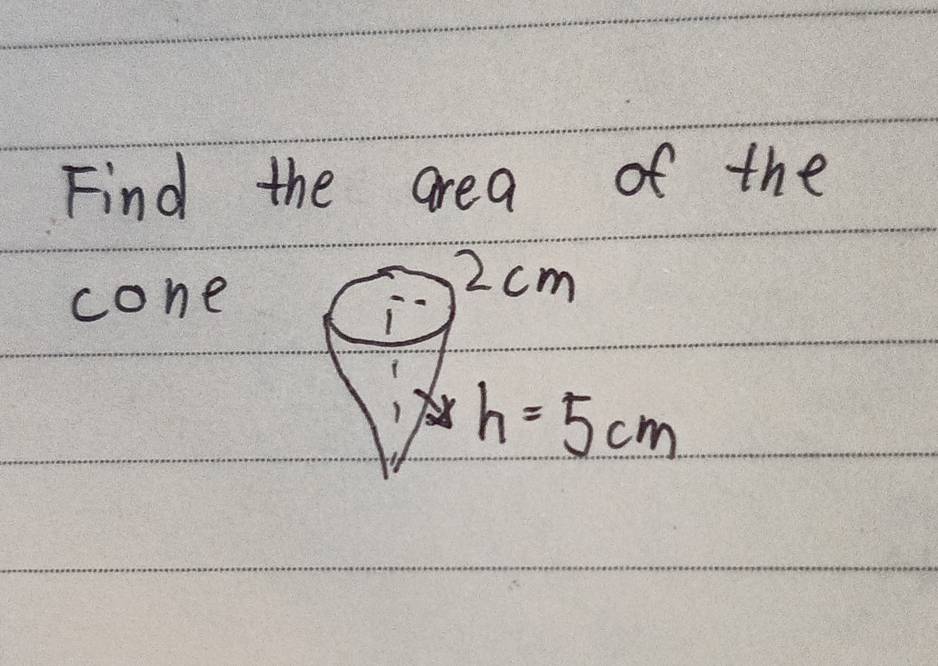 Find the area of the
cone 2cm
h = 5cm